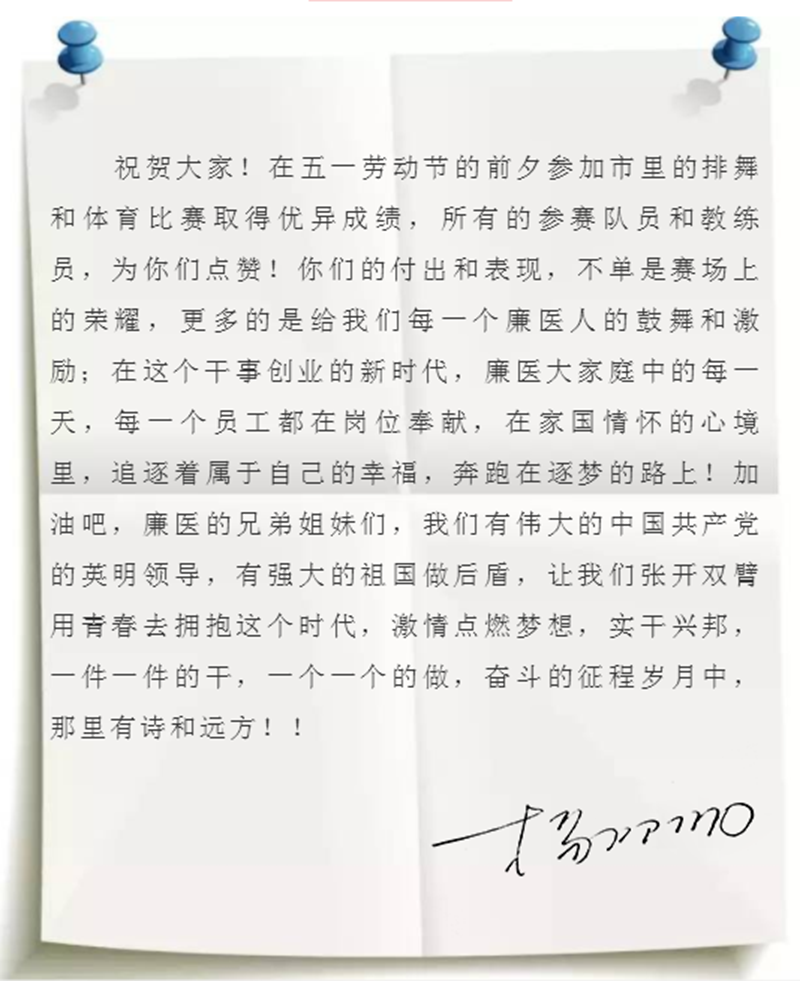 祝贺大家！在五一劳动节的前夕参加市里的排舞
和体育比赛取得优异成绩，所有的参赛队员和教练
员，为你们点赞！你们的付出和表现，不单是赛场上
的荣耀，更多的是给我们每一个廉医人的鼓舞和激
励；在这个干事创业的新时代，廉医大家庭中的每一
天，每一个员工都在岗位奉献，在家国情怀的心境
里，追逐着属于自己的幸福，奔跑在逐梦的路上！加
油吧，廉医的兄弟姐妹们，我们有伟大的中国共产党
的英明领导，有强大的祖国做后盾，让我们张开双臂
用青春去拥抱这个时代，激情点燃梦想，实干兴邦，
一件一件的干，一个一个的做，奋斗的征程岁月中，
那里有诗和远方！！